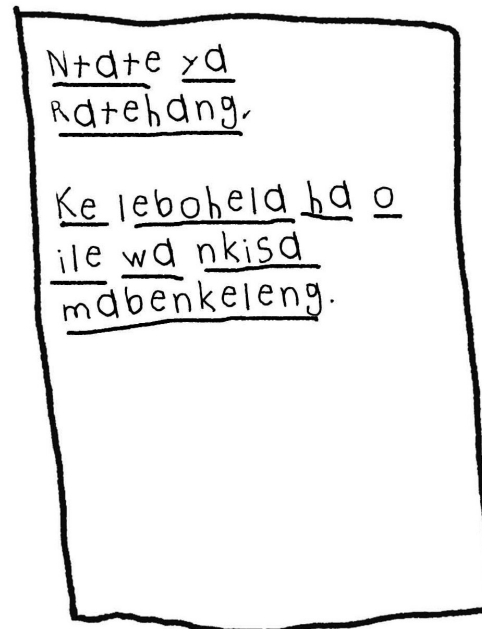 Ntate ya
Ratehang.
Ke lebohela ha o
ile wa nkisa
mabenkeleng.